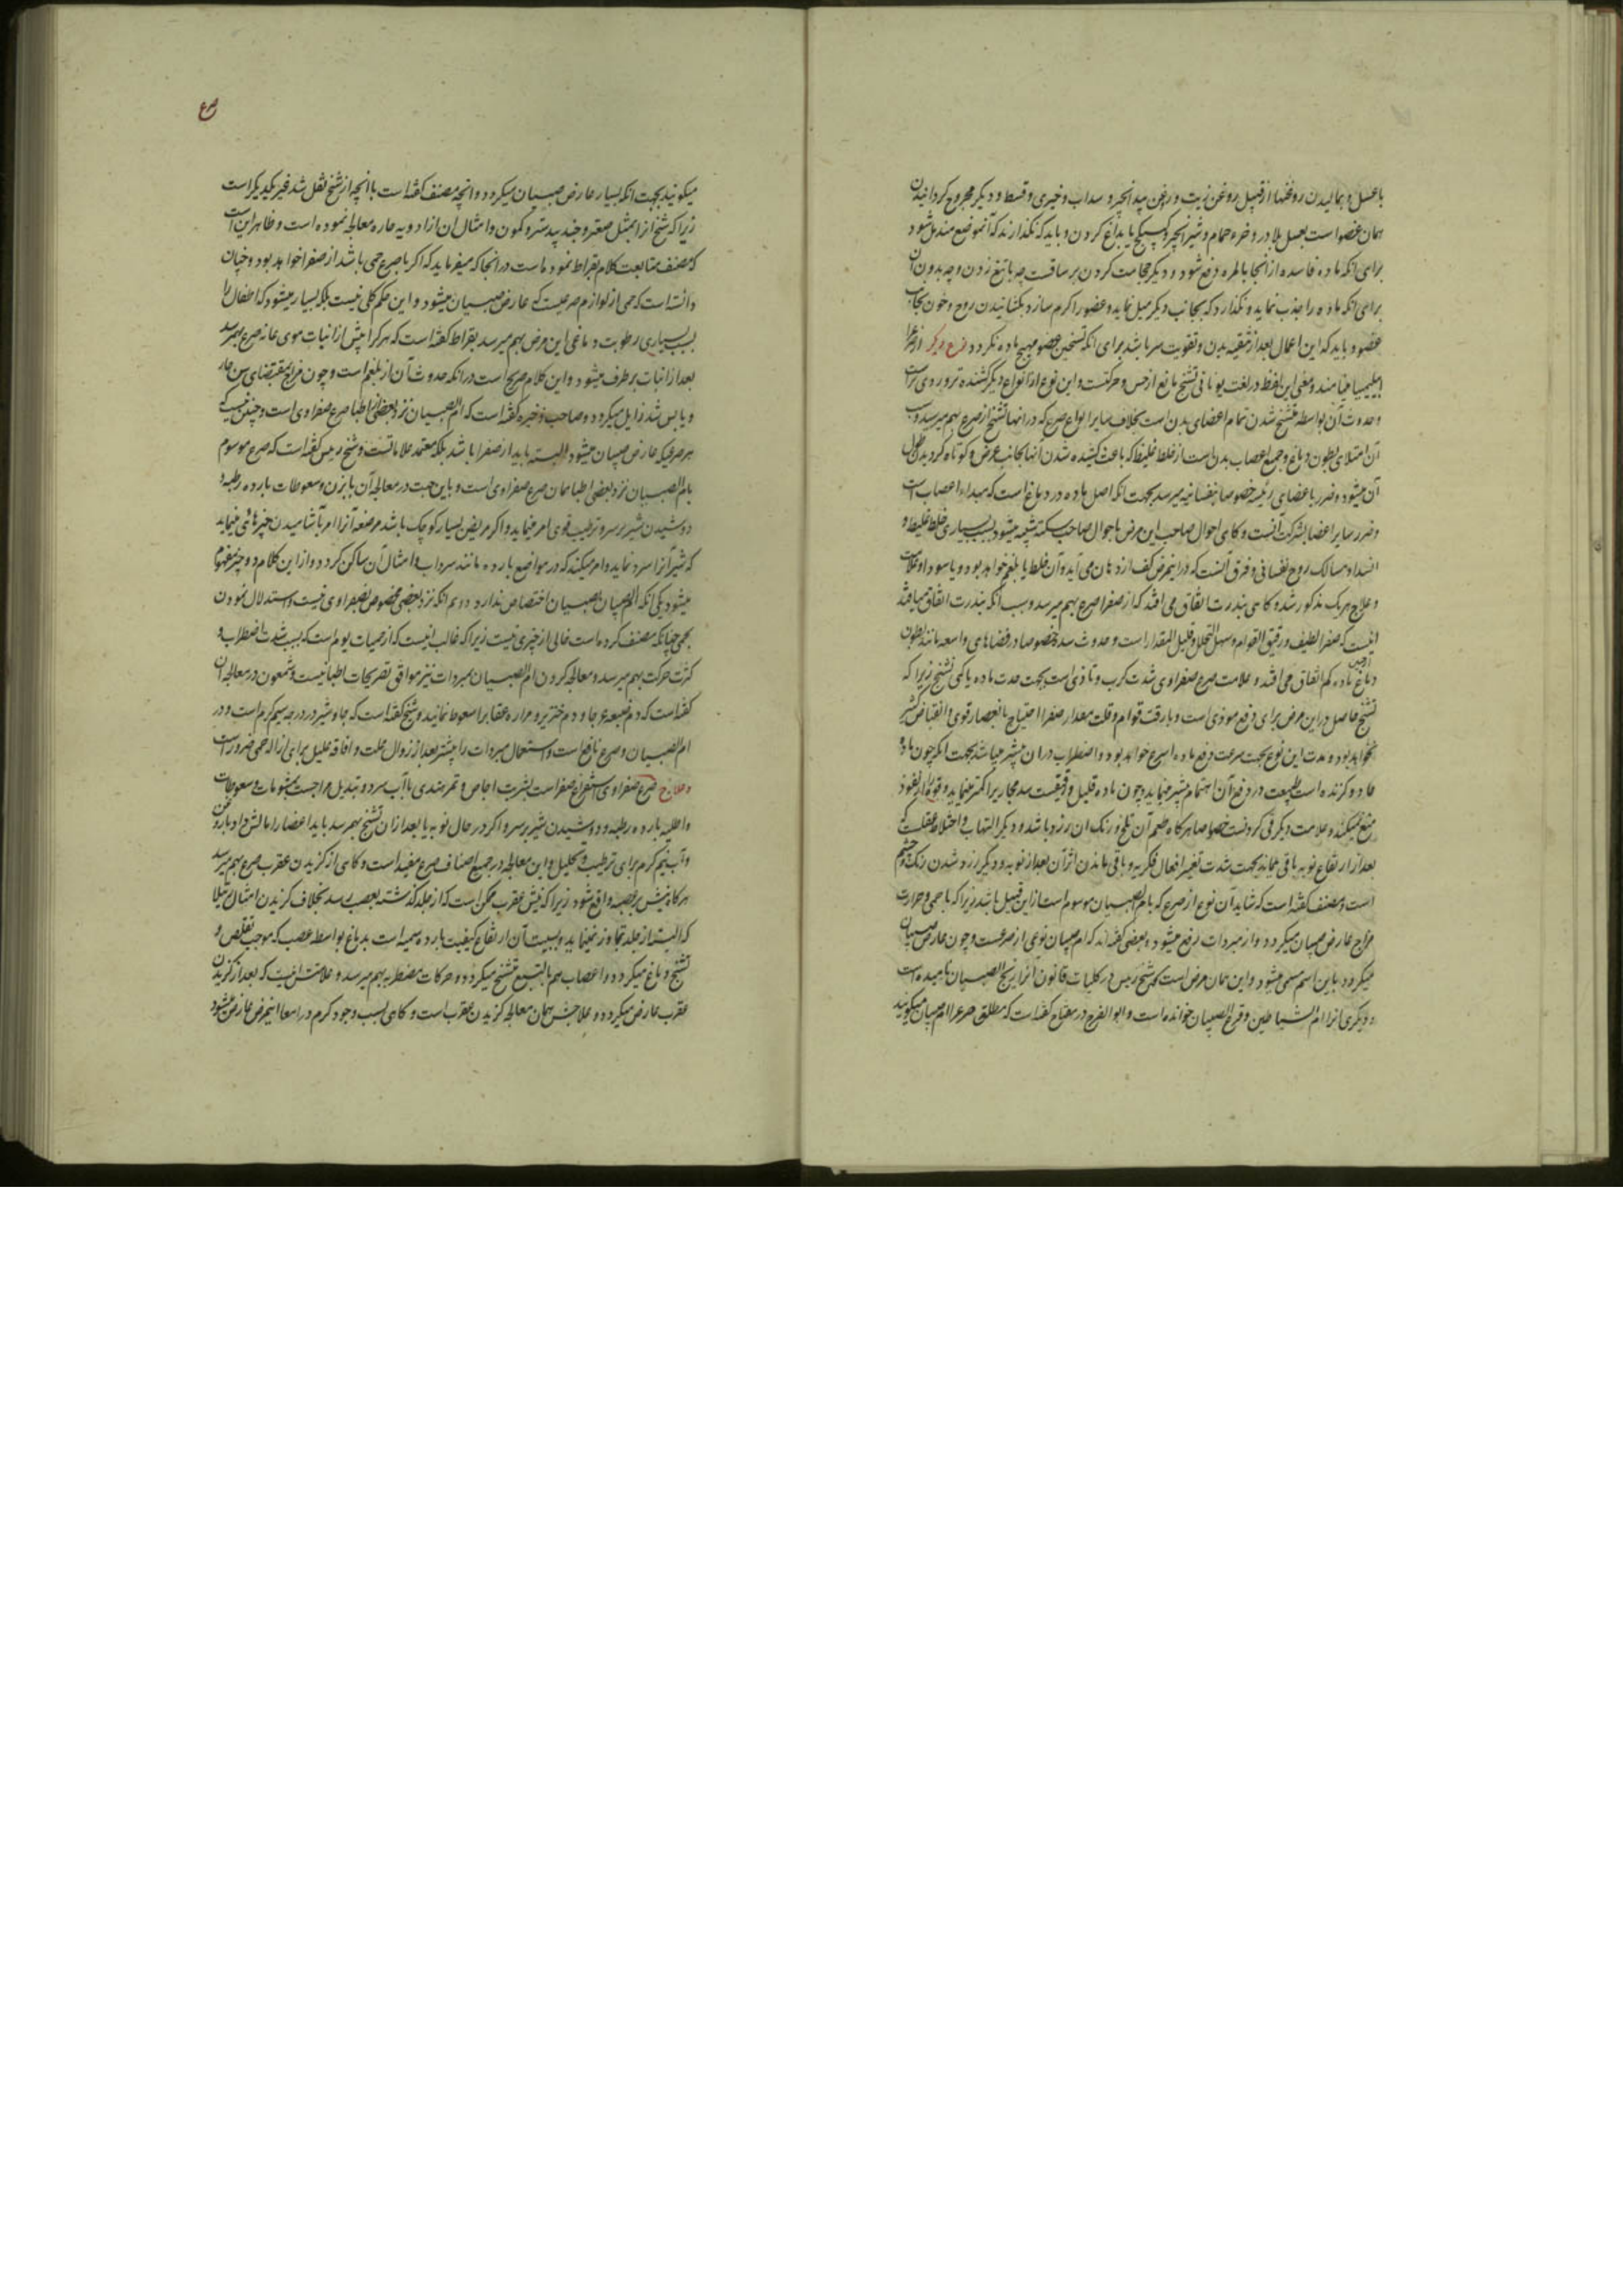 باعسل و بمالیدن روغنها از قبیل روغن زیت و روغن بیدانجیر و سداب و خیری و قسط و دیکر مجروح کردانیدن
همان عضواست بعسل بلادر و خرء حمام و شیر انجیر و کبیکج یا بداغ کردن و باید که نکذارند که آنموضع مندمل شود
برای انکه ماده فاسده از انجا بالمره دفع شود و دیکر حجامت کردن بر ساقست چه با تیغ زدن و چه بدون آن
برای انکه ماده را جذب نماید و نکذارد که بجانب دیکر میل نماید و عضو را کرم سازد بکشانیدن روح و خون بجانب
عضو و باید که این اعمال بعد از تنقیه بدن و تقویت سر باشد برای انکه تسخین عضو مهیج ماده نکردد نوع دیکر از صرع را
ابیلیمیا مینامند و معنی این لفظ در لغت یونانی تشنج مانع از حس و حرکتست و این نوع از انواع دیکر کشنده تر و ردی تر است
و حدوث آن بواسطه متشنج شدن تمام اعضای بدن است بخلاف سایر انواع صرع که در انها تشنج از صرع بهم میرسد و سبب
آن امتلای بطون دماغ و جمیع اعصاب بدن است از خلط غلیظ که باعث کشیده شدن آنها بجانب عرض و کوتاه کردیدن طول
آن میشود و ضرر باعضای رئیسه خصوصا نفسانیه میرسد بجهت انکه اصل ماده در دماغ است که مبداء اعصاب است
و ضرر سایر اعضا بشرکت آنست و کاهی احوال صاحب این مرض باحوال صاحب سکته شبیه میشود بسبب بسیاری خلط غلیظ و
انسداد مسالک روح نفسانی و فرق آنست که در اینمرض کف از دهان می آید و آن خلط یا بلغم خواهد بود و یا سودا و علامت
و علاج هر یک مذکور شد و کاهی بندرت اتفاق می افتد که از صفرا صرع بهم میرسد و سبب آنکه بندرت اتفاق میافتد
اینست که صفرا لطیف و رقیق القوام و سهل التحلل و قلیل المقدار است و حدوث سده خصوصا در فضاهای واسعه مانند بطون
دماغ از این ماده کم اتفاق می افتد و علامت صرع صفراوی شدت کرب و تاذی است بجهت حدت ماده یا کمی تشنج زیرا که
تشنج حاصل در این مرض برای دفع موذی است و با رقت قوام و قلت مقدار صفرا احتیاج بانعصار قوی و انقباض کثیر
نخواهد بود و مدت این نوع بجهت سرعت دفع ماده اسرع خواهد بود و اضطراب در ان بیشتر میباشد بجهت انکه چون ماده
حاد و کزنده است طبیعت در دفع آن اهتمام بیشتر مینماید و چون ماده قلیل و رقیقست سد مجاری را کمتر مینماید و قوی را از نفوذ
منع نمیکند و علامت دیکر قی کردنست خصوصا هرکاه طعم آن تلخ و رنک ان زرد باشد و دیکر التهاب و اختلاط عقلست که
بعد از ارتفاع نوبه باقی بماند بجهت شدت تغییر افعال فکریه و باقی ماندن اثر آن بعد از نوبه و دیکر زرد شدن رنک و چشم
است و مصنف کفته است که شاید آن نوع از صرع که بام الصبیان موسوم است از این قبیل باشد زیرا که باحمی و حرارت
مزاج عارض صبیان میکردد و از مبردات رفع میشود و بعضی کفته اند که ام صبیان نوعی از صرعست و چون عارض صبیان
میکردد باین اسم مسمی میشود و این همان مرض است که شیخ رئیس در کلیات قانون انرا ریح الصبیان نامیده است
و دیکری انرا ام الشیاطین و فزع الصبیان خوانده است و ابوالفرج در مفتاح کفته است که مطلق صرع را ام صبیان میکویند
صرع
میکویند بجهت انکه بسیار عارض صبیان میکردد و انچه مصنف کفته است با انچه از شیخ نقل شد غیر یکدیکر است
زیرا که شیخ انرا بمثل صعتر و جندبیدستر و کمون و امثال ان از ادویه حاره معالجه نموده است و ظاهر این است
که مصنف متابعت کلام بقراط نموده است در انجا که میفرماید که اکر با صرع حمی باشد از صفرا خواهد بود و چنان
دانسته است که حمی از لوازم صرعیست که عارض صبیان میشود و این حکم کلی نیست بلکه بسیار میشود که اطفال را
بسبب بسیاری رطوبت دماغی این مرض بهم میرسد بقراط کفته است که هر کرا پیش از انبات موی عانه صرع بهمرسد
بعد از انبات برطرف میشود و این کلام صریح است در انکه حدوث آن از بلغم است و چون مزاج بمقتضای سن حار
و یابس شد زایل میکردد و صاحب ذخیره کفته است که ام الصبیان نزد بعضی از اطبا صرع صفراوی است و چنین نیست که
هر صرعیکه عارض صبیان میشود البته باید از صفرا باشد بلکه معتمد علاماتست و شیخ رئیس کفته است که صرع موسوم
بام الصبیان نزد بعضی اطبا همان صرع صفراوی است و باین جهت در معالجه آن بابزن و سعوطات بارده رطبه و
دوشیدن شیر بر سر و ترطیب قوی امر مینماید و اکر مریض بسیار کوچک باشد مرضعه آنرا امر بآشامیدن چیزهائی مینماید
که شیر آنرا سرد نماید و امر میکند که در مواضع بارده مانند سرداب و امثال آن ساکن کردد و از این کلام دو چیز مفهوم
میشود یکی آنکه ام الصبیان بصبیان اختصاص ندارد دویم انکه نزد بعضی مخصوص بصفراوی نیست و استدلال نمودن
بحمی چنانکه مصنف کرده است خالی از چیزی نیست زیرا که غالب اینست که از حمیات یوم است که بسبب شدت اضطراب و
کثرت حرکت بهم میرسد و معالجه کردن ام الصبیان بمبردات نیز موافق تصریحات اطبا نیست و شمعون در معالجه آن
کفته است که دم ضبعه عرجا و دم خنزیر و مراره عقاب را سعوط نمایند و شیخ کفته است که جاوشیر در درجه سیم کرم است و در
ام الصبیان و صرع نافع است و استعمال مبردات را بیشتر بعد از زوال علت و افاقه علیل برای ازاله حمی ضرور است
و علاج صرع صفراوی استفراغ صفر است بشربت اجاص و تمرهندی با آب سرد و تبدیل مزاجست بمشمومات و سعوطات
و اطلیه بارده رطبه و دوشیدن شیر بر سر و اکر در حال نوبه یا بعد از ان تشنج بهمرسد باید اعضا را مالش داد بروغن
و آب نیم کرم برای ترطیب و تحلیل و این معالجه در جمیع اصناف صرع مفید است و کاهی از کزیدن عقرب صرع بهم میرسد
هرکاه نیش بر عصبه واقع شود زیرا که نیش عقرب ممکن است که از جلد کذشته بعصب رسد بخلاف کزیدن امثال رتیلا
که البته از جلد تجاوز نمینماید و بسبب آن ارتفاع کیفیت بارده سمیه است بدماغ بواسطه عصب که موجب تقلص و
تشنج دماغ میکردد و اعصاب هم بالتبع متشنج میکردد و حرکات مضطربه بهم میرسد و علامتش اینست که بعد از کزیدن
عقرب عارض میکردد و علاجش همان معالجه کزیدن عقرب است و کاهی بسبب وجود کرم در امعا اینمرض عارض میشود